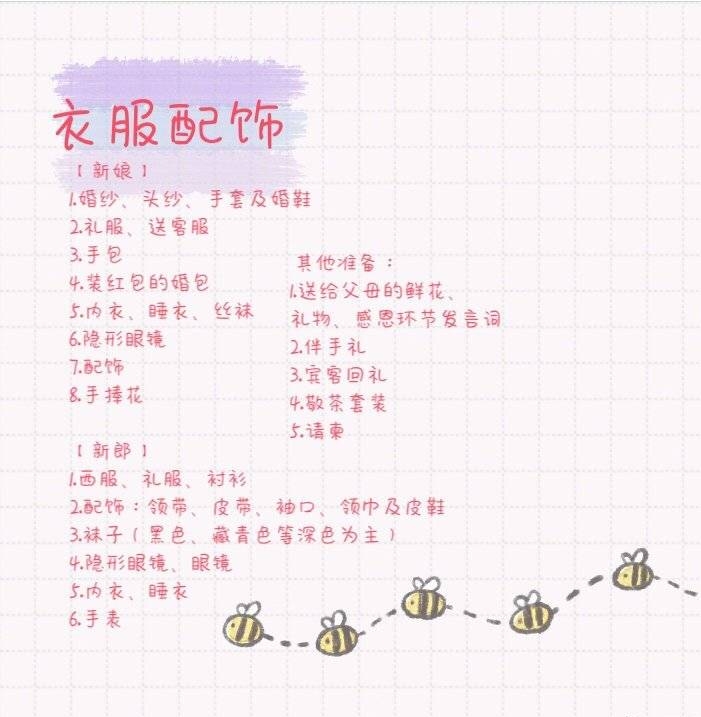 衣服配饰
【新娘】
1.婚纱、头纱、手套及婚鞋
2.礼服、送客服
3.手包
4.装红包的婚包
5.内衣、睡衣、丝袜
6.隐形眼镜
7.配饰
8.手捧花
其他准备：
1.送给父母的鲜花、
礼物、感恩环节发言词
2.伴手礼
3.宾客回礼
4.敬茶套装
5.请柬
【新郎】
1.西服、礼服、衬衫
2.配饰：领带、皮带、袖口、领巾及皮鞋
3.袜子（黑色、藏青色等深色为主）
4.隐形眼镜、眼镜
5.内衣、睡衣
6.手表